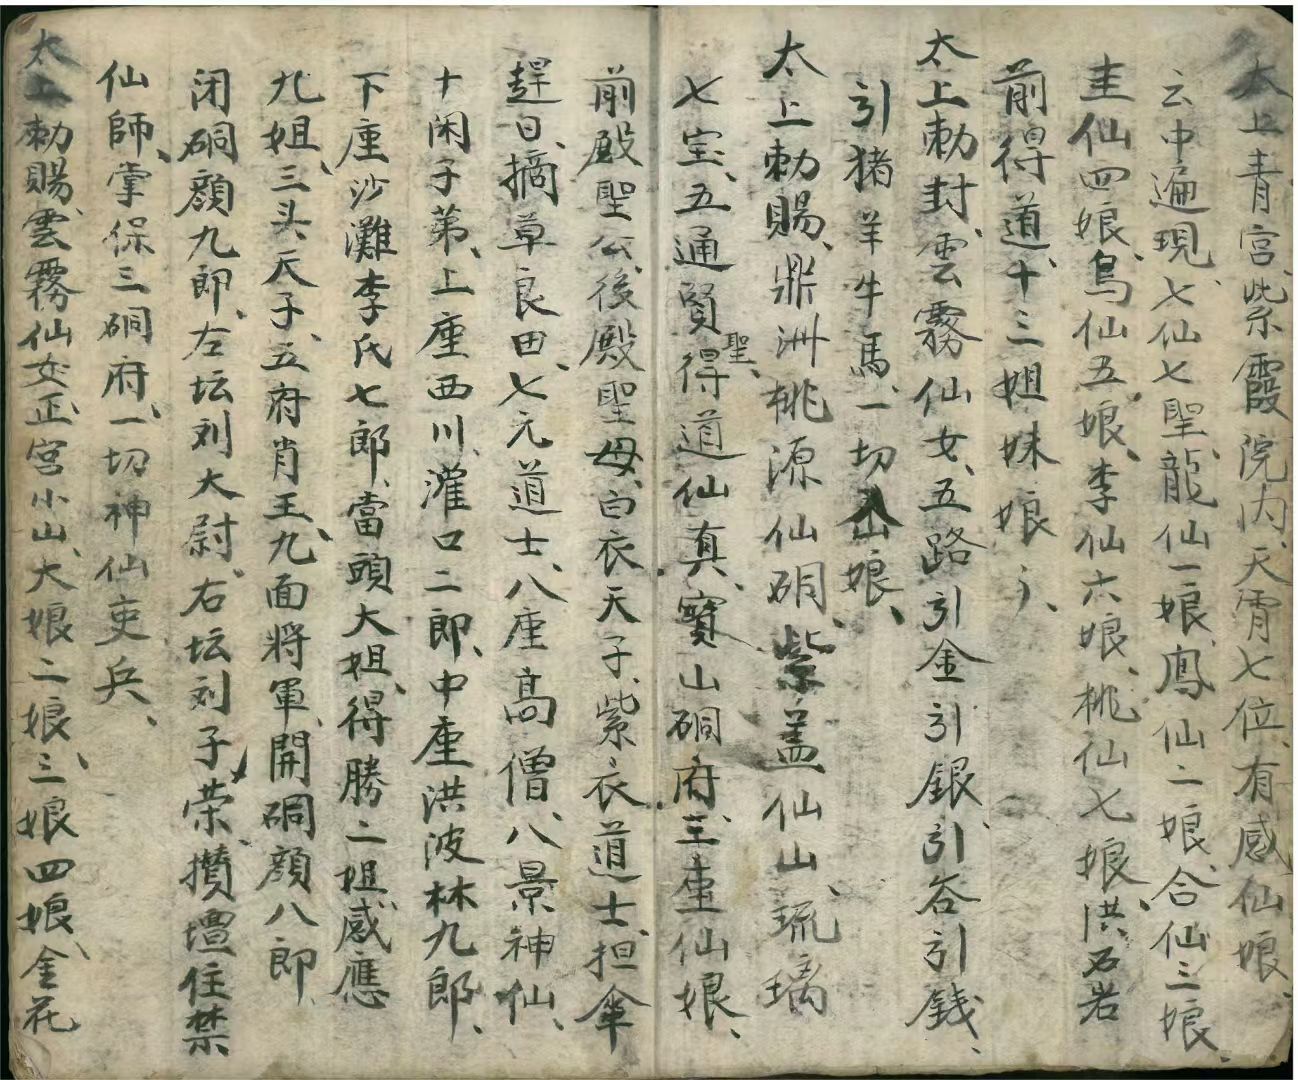 太上青宫紫霞院内、天霄七位、有感仙娘、
云中遍現、七仙七聖、龍仙一娘、鳳仙二娘、合仙三娘、
圭仙四娘、烏仙五娘、李仙六娘、桃仙七娘、洪石岩
前得道、十三姐妹娘、
太上勅封、雲霧仙女、五路引金引銀、引谷引錢、
引猪羊牛馬、一切山娘、
太上勅賜、鼎洲桃源仙硐、紫盖仙山、琉璃
七宝、五通賢聖、得道仙真、寶山硐府、三座仙娘、
前殿聖公、後殿聖母、白衣天子、紫衣道士、担傘
趕日、摘草良田、七元道士、八座高僧、八景神仙、
十闲子第、上座西川、灌口二郎、中座洪波林九郎、
下座沙灘李氏七郎、當頭大姐、得勝二姐、感應
九姐、三头天子、五府肖王、九面將軍、開硐顔八郎、
闭硐顔九郎、左坛刘大尉、右坛刘子荣、攢壇住禁
仙師、掌保三硐府、一切神仙吏兵、
太上勅賜、雲霧仙女、正宫小山、大娘二娘、三娘四娘、金花